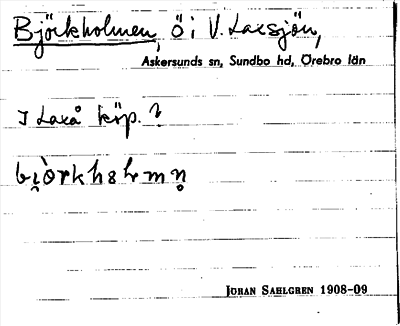 Björkholmen, ö i V. Laxsjön,
Askersunds sn, Sundbo hd, Örebro län
I Laxå köp. ?
bi̯òrkholmn̥
JOHAN SAHLGREN 1908-09